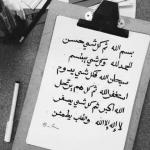 بسم الله ثم كل شيء حسن
الحمدلله وكل شيء يبتسم
سبحان الله فكل شيء يدوم
استغفر الله ثم كل هم يرتحل
الله اكبر ثم كل شيء يصغر
لا إله إلا الله وقلب يطمئن